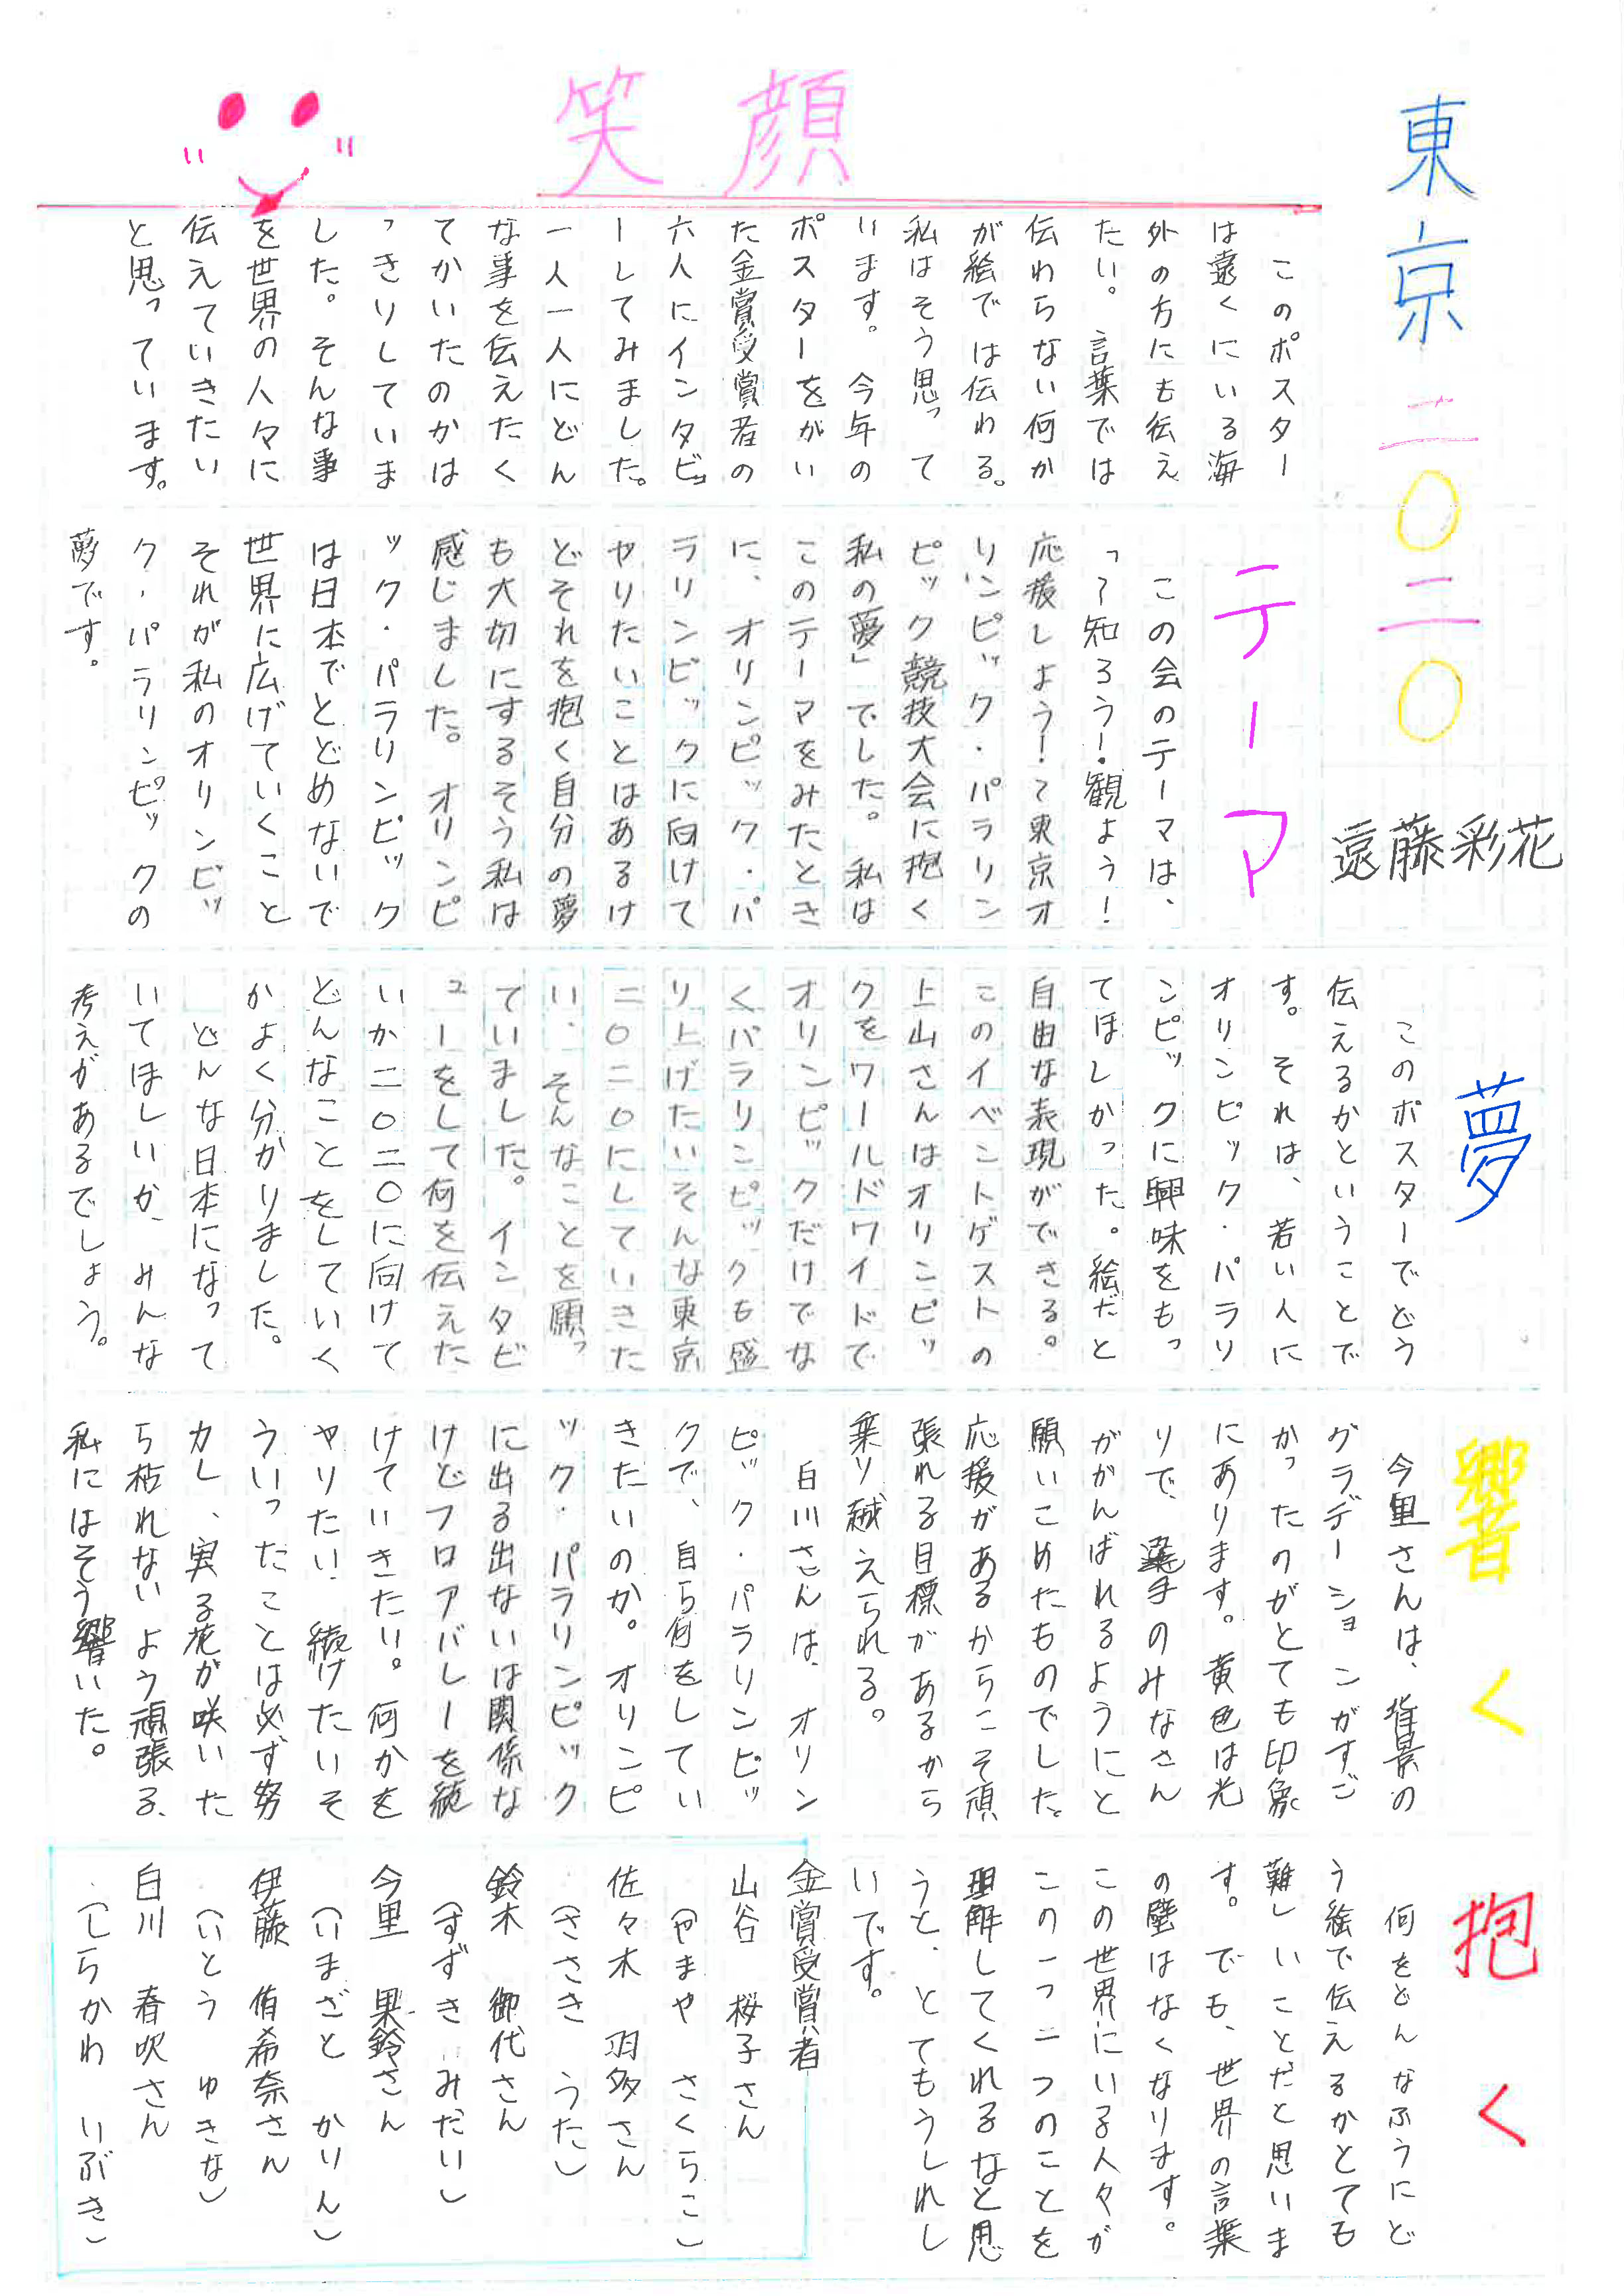 東京二〇二〇
遠藤彩花
笑顔
このポスター
は遠くにいる海
外の方にも伝え
たい。言葉では
伝わらない何か
が絵では伝わる。
私はそう思って
います。今年の
ポスターをがい
た金賞受賞者の
六人にインタビュ
ーしてみました。
一人一人にどん
な事を伝えたく
てかいたのかは
っきりしていま
した。そんな事
を世界の人々に
伝えていきたい
と思っています。
テーマ
この会のテーマは、
「〜知ろう!観よう!
応援しよう!〜東京オ
リンピック・パラリン
ピック競技大会に抱く
私の夢」でした。私は
このテーマをみたとき
に、オリンピック・パ
ラリンピックに向けて
やりたいことはあるけ
どそれを抱く自分の夢
も大切にするそう私は
感じました。オリンピ
ック・パラリンピック
は日本でとどめないで
世界に広げていくこと
それが私のオリンピッ
ク・パラリンピックの
夢です。
夢
このポスターでどう
伝えるかということで
す。それは、若い人に
オリンピック・パラリ
ンピックに興味をもっ
てほしかった。絵だと
自由な表現ができる。
このイベントゲストの
上山さんはオリンピッ
クをワールドワイドで
オリンピックだけでな
くパラリンピックも盛
り上げたいそんな東京
二〇二〇にしていきた
い、そんなことを願っ
ていました。インタビ
ューをして何を伝えた
いか二〇二〇に向けて
どんなことをしていく
かよく分かりました。
どんな日本になって
いてほしいか、みんな
考えがあるでしょう。
響く
今里さんは、背景の
グラデーションがすご
かったのがとても印象
にあります。黄色は光
りで、選手のみなさん
ががんばれるようにと
願いこめたものでした。
応援があるからこそ頑
張れる目標があるから
乗り越えられる。
白川さんは、オリン
ピック・パラリンピッ
クで、自ら何をしてい
きたいのか。オリンピ
ック・パラリンピック
に出る出ないは関係な
けどフロアバレーを続
けていきたい。何かを
やりたい、続けたいそ
ういったことは必ず努
力し、実る花が咲いた
ら枯れないよう頑張る、
私にはそう響いた。
抱く
何をどんなふうにど
う絵で伝えるかとても
難しいことだと思いま
す。でも、世界の言葉
の壁はなくなります。
この世界にいる人々が
この一つ二つのことを
理解してくれるなと思
うと、とてもうれし
いです。
金賞受賞者
山谷 桜子さん
(やまや さくらこ)
佐々木 羽多さん
(ささき うた)
鈴木 御代さん
(すずき みだい)
今里 果鈴さん
(いまざと かりん)
伊藤 侑希奈さん
(いとう ゆきな)
白川 春吹さん
(しらかわ いぶき)